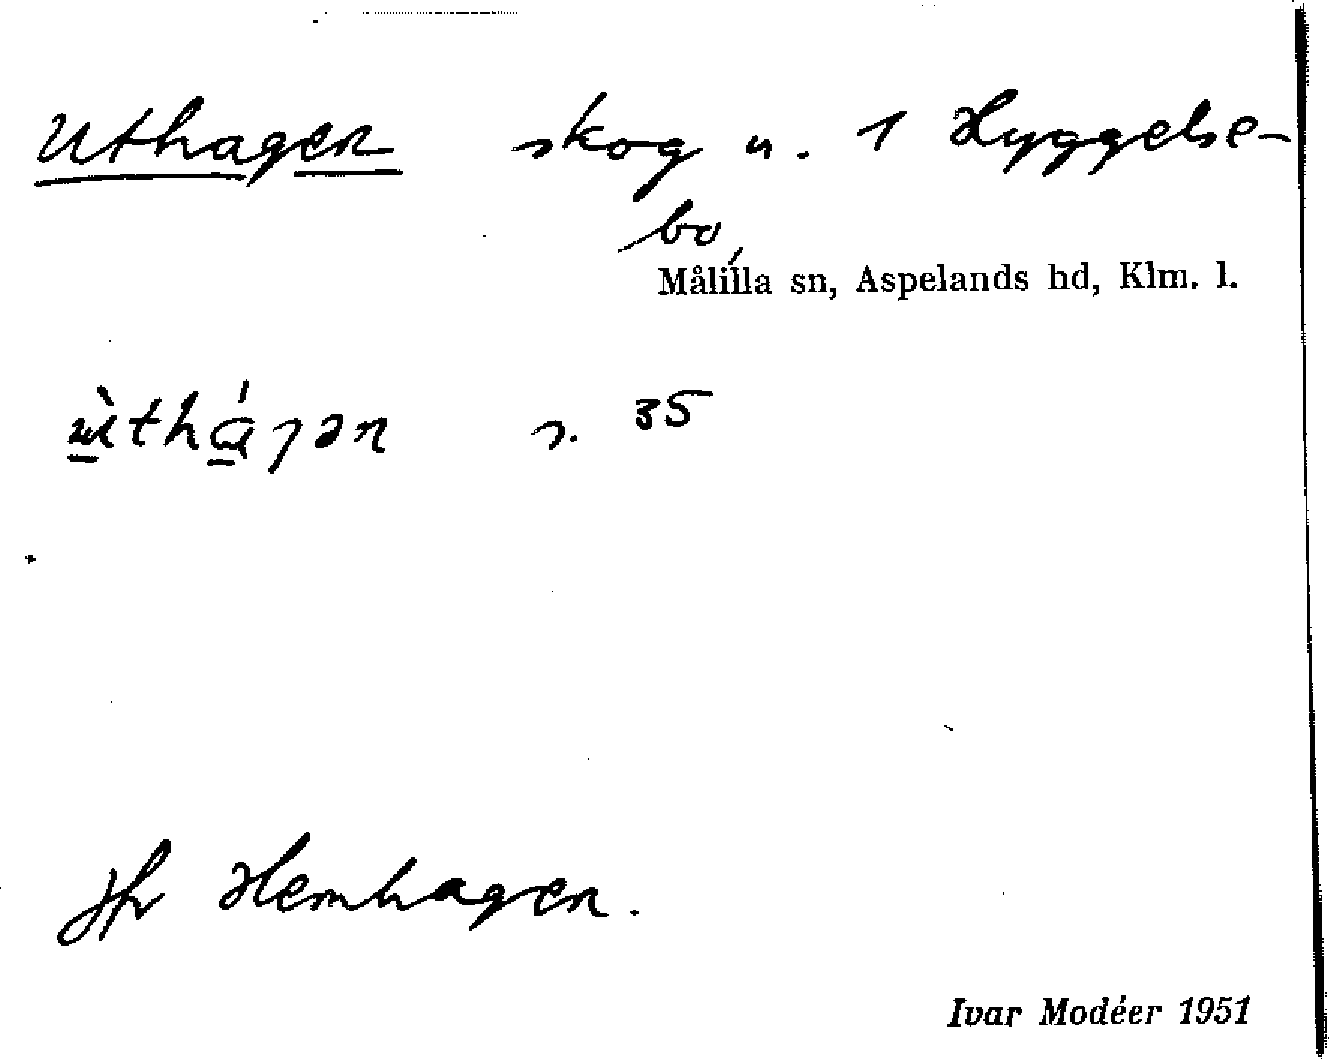 Uthagen skog u. 1 Hyggelse-
bo,
Målilla sn, Aspelands hd, Klm. l.
s. 35
Jfr Hemhagen.
Ivar Modéer 1951